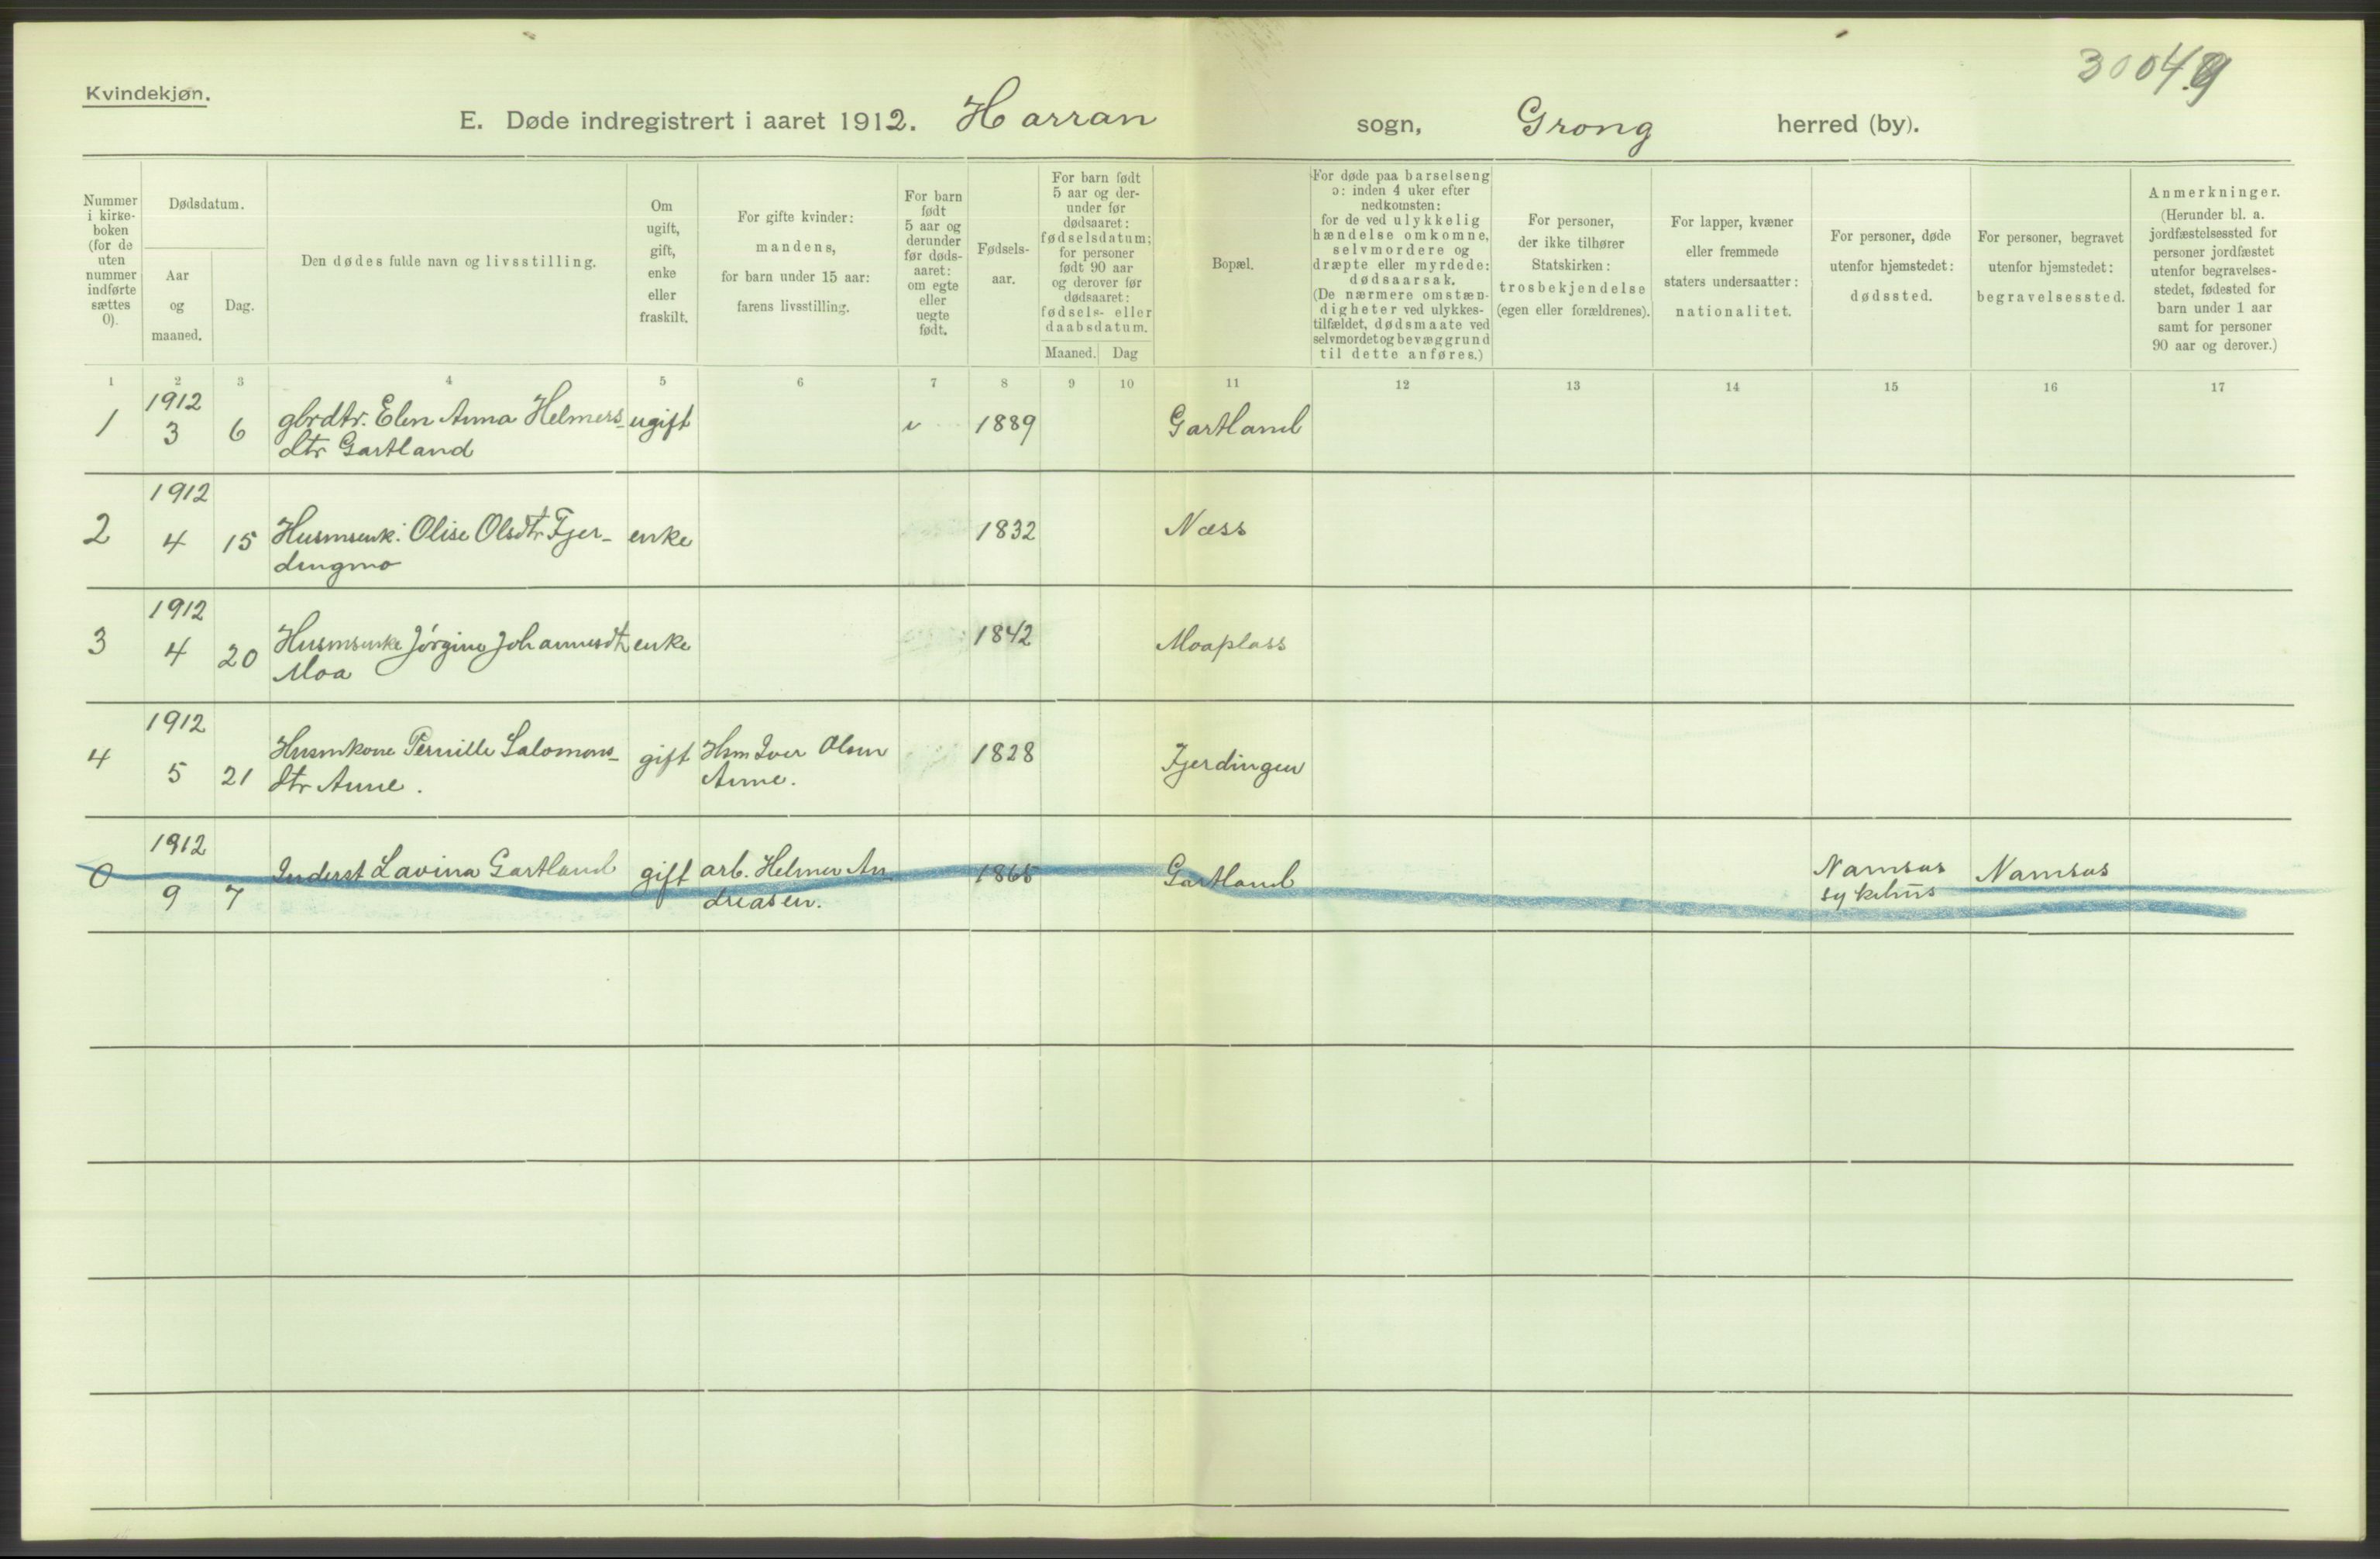 30049
Kvindekjøn.
E. Døde indregistrert i aaret 1912. Harran sogn, Grong herred (by).
Nummer i kirke-boken (for de uten nummer indførte sættes 0).
Dødsdatum.
Aar og maaned.
Dag.
Den dødes fulde navn og livsstilling.
Om ugift, gift, enke eller fraskilt.
For gifte kvinder: mandens, for barn under 15 aar: farens livsstilling.
For barn født 5 aar og derunder før døds-aaret: om egte eller uegte født.
Fødsels-aar.
For barn født 5 aar og der-under før dødsaaret: fødselsdatum; for personer født 90 aar og derover før dødsaaret: fødsels- eller daabsdatum.
Maaned. Dag
Bopæl.
For døde paa barselseng ɔ: inden 4 uker efter nedkomsten: for de ved ulykkelig hændelse omkomne, selvmordere og dræpte eller myrdede: dødsaarsak. (De nærmere omstæn-digheter ved ulykkes-tilfældet, dødsmaate ved selvmordet og bevæggrund til dette anføres.)
For personer, der ikke tilhører Statskirken: trosbekjendelse (egen eller forældrenes).
For lapper, kvæner eller fremmede staters undersaatter: nationalitet.
For personer, døde utenfor hjemstedet: dødssted.
For personer, begravet utenfor hjemstedet: begravelsessted.
Anmerkninger. (Herunder bl. a. jordfæstelsessted for personer jordfæstet utenfor begravelses-stedet, fødested for barn under 1 aar samt for personer 90 aar og derover.)
1 2 3 4 5 6 7 8 9 10 11 12 13 14 15 16 17
1912
1 3 6 gbrdtr. Elen Anna Helmers- ugift 1889 Gartland
dtr Gartland
1912
2 4 15 Husmsenk: Olise Olsdtr Fjer- enke 1832 Næss
dingmo
1912
3 4 20 Husmsenke Jørgine Johannesdt enke 1842 Moaplass
Moa
1912
4 5 21 Husmkone Pernille Salomons- gift Hsm Iver Olsen 1828 Fjerdingen
dtr Aune. Aune.
1912
0 9 7 Inderst Lavina Gartland gift arb. Helmer An- 1865 Gartland Namsos Namsos
dreasen. sykehus